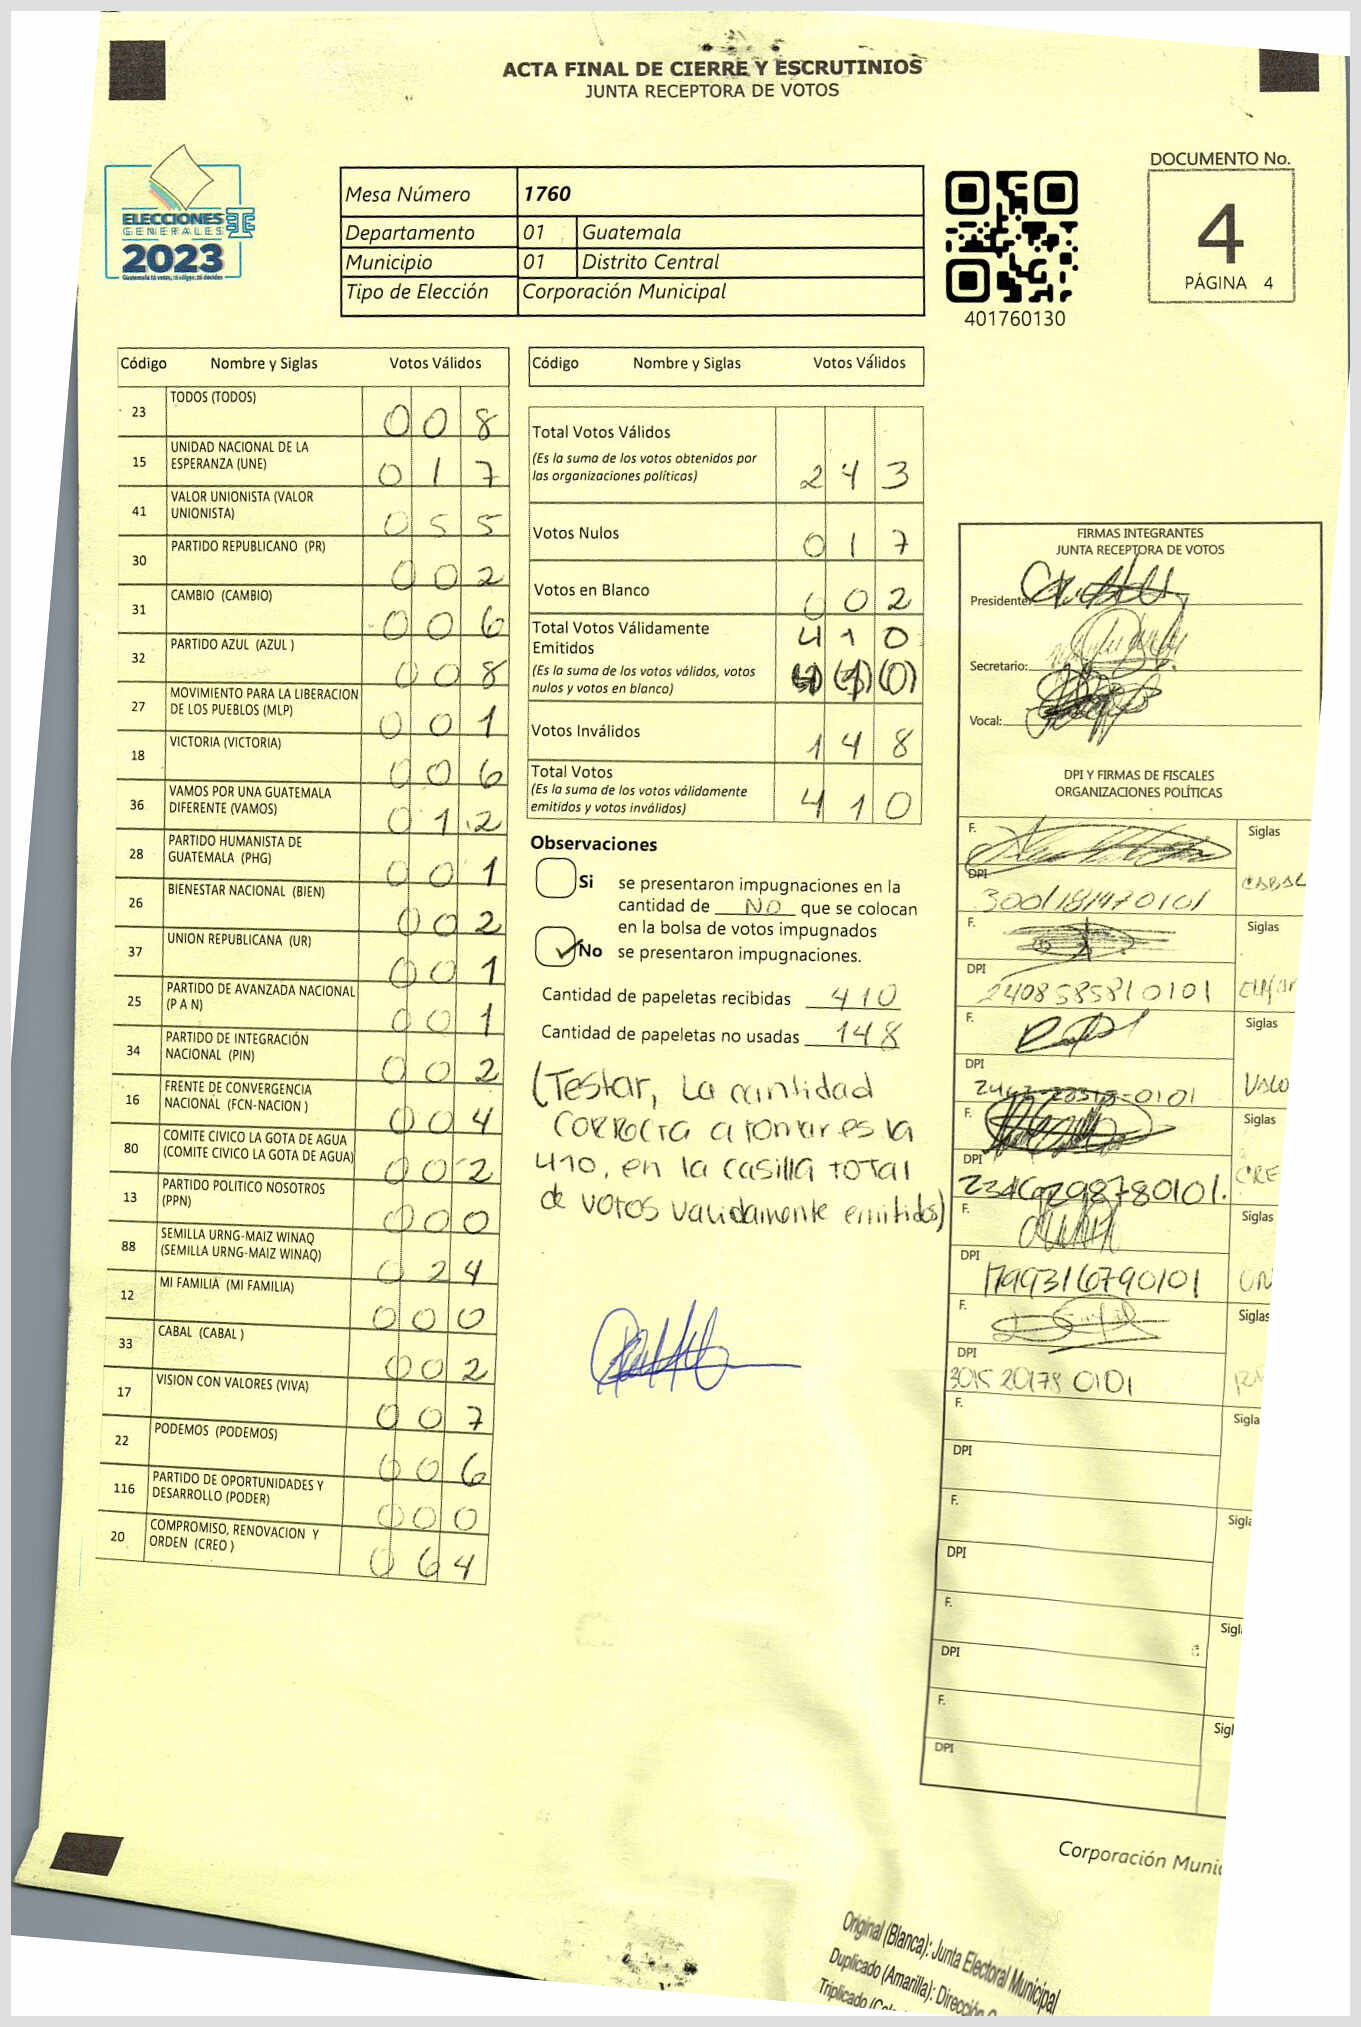 ACTA FINAL DE CIERRE Y ESCRUTINIOS
JUNTA RECEPTORA DE VOTOS
ELECCIONES
GENERALES
2023
Mesa Número 1760
Departamento 01 Guatemala
Municipio 01 Distrito Central
Tipo de Elección Corporación Municipal
401760130
DOCUMENTO No.
4
PÁGINA 4
Código Nombre y Siglas Votos Válidos
23 TODOS (TODOS) 0 0 8
15 UNIDAD NACIONAL DE LA
ESPERANZA (UNE) 0 1 7
41 VALOR UNIONISTA (VALOR
UNIONISTA) 0 5 5
30 PARTIDO REPUBLICANO (PR) 0 0 2
31 CAMBIO (CAMBIO) 0 0 6
32 PARTIDO AZUL (AZUL ) 0 0 8
27 MOVIMIENTO PARA LA LIBERACION
DE LOS PUEBLOS (MLP) 0 0 1
18 VICTORIA (VICTORIA) 0 0 6
36 VAMOS POR UNA GUATEMALA
DIFERENTE (VAMOS) 0 1 2
28 PARTIDO HUMANISTA DE
GUATEMALA (PHG) 0 0 1
26 BIENESTAR NACIONAL (BIEN) 0 0 2
37 UNION REPUBLICANA (UR) 0 0 1
25 PARTIDO DE AVANZADA NACIONAL
(P A N) 0 0 1
34 PARTIDO DE INTEGRACIÓN
NACIONAL (PIN) 0 0 2
16 FRENTE DE CONVERGENCIA
NACIONAL (FCN-NACION ) 0 0 4
80 COMITE CIVICO LA GOTA DE AGUA
(COMITE CIVICO LA GOTA DE AGUA) 0 0 2
13 PARTIDO POLITICO NOSOTROS
(PPN) 0 0 0
88 SEMILLA URNG-MAIZ WINAQ
(SEMILLA URNG-MAIZ WINAQ) 0 2 4
12 MI FAMILIA (MI FAMILIA) 0 0 0
33 CABAL (CABAL ) 0 0 2
17 VISION CON VALORES (VIVA) 0 0 7
22 PODEMOS (PODEMOS) 0 0 6
116 PARTIDO DE OPORTUNIDADES Y
DESARROLLO (PODER) 0 0 0
20 COMPROMISO, RENOVACION Y
ORDEN (CREO ) 0 6 4
Código Nombre y Siglas Votos Válidos
Total Votos Válidos
(Es la suma de los votos obtenidos por
las organizaciones políticas) 2 4 3
Votos Nulos 0 1 7
Votos en Blanco 0 0 2
Total Votos Válidamente 4 1 0
Emitidos
(Es la suma de los votos válidos, votos
nulos y votos en blanco)
Votos Inválidos 1 4 8
Total Votos
(Es la suma de los votos válidamente
emitidos y votos inválidos) 4 1 0
Observaciones
Si se presentaron impugnaciones en la
cantidad de NO que se colocan
en la bolsa de votos impugnados
No se presentaron impugnaciones.
Cantidad de papeletas recibidas 410
Cantidad de papeletas no usadas 148
(Testar, La cantidad
correcta a tomar es la
410, en la casilla total
de votos validamente emitidos)
FIRMAS INTEGRANTES
JUNTA RECEPTORA DE VOTOS
Presidente:
Secretario:
Vocal:
DPI Y FIRMAS DE FISCALES
ORGANIZACIONES POLÍTICAS
F. Siglas
DPI CABAL
F. Siglas
DPI 2408585810101
F. Siglas
DPI
F. Siglas
DPI CRE
F. Siglas
DPI 1799316790101
F. Siglas
DPI 3015 20178 0101
F. Sigla
DPI
F. Sigla
DPI
F. Sigl
DPI
F. Sigl
DPI
Corporación Munic
Original (Blanca): Junta Electoral Municipal
Duplicado (Amarilla): Dirección
Triplicado